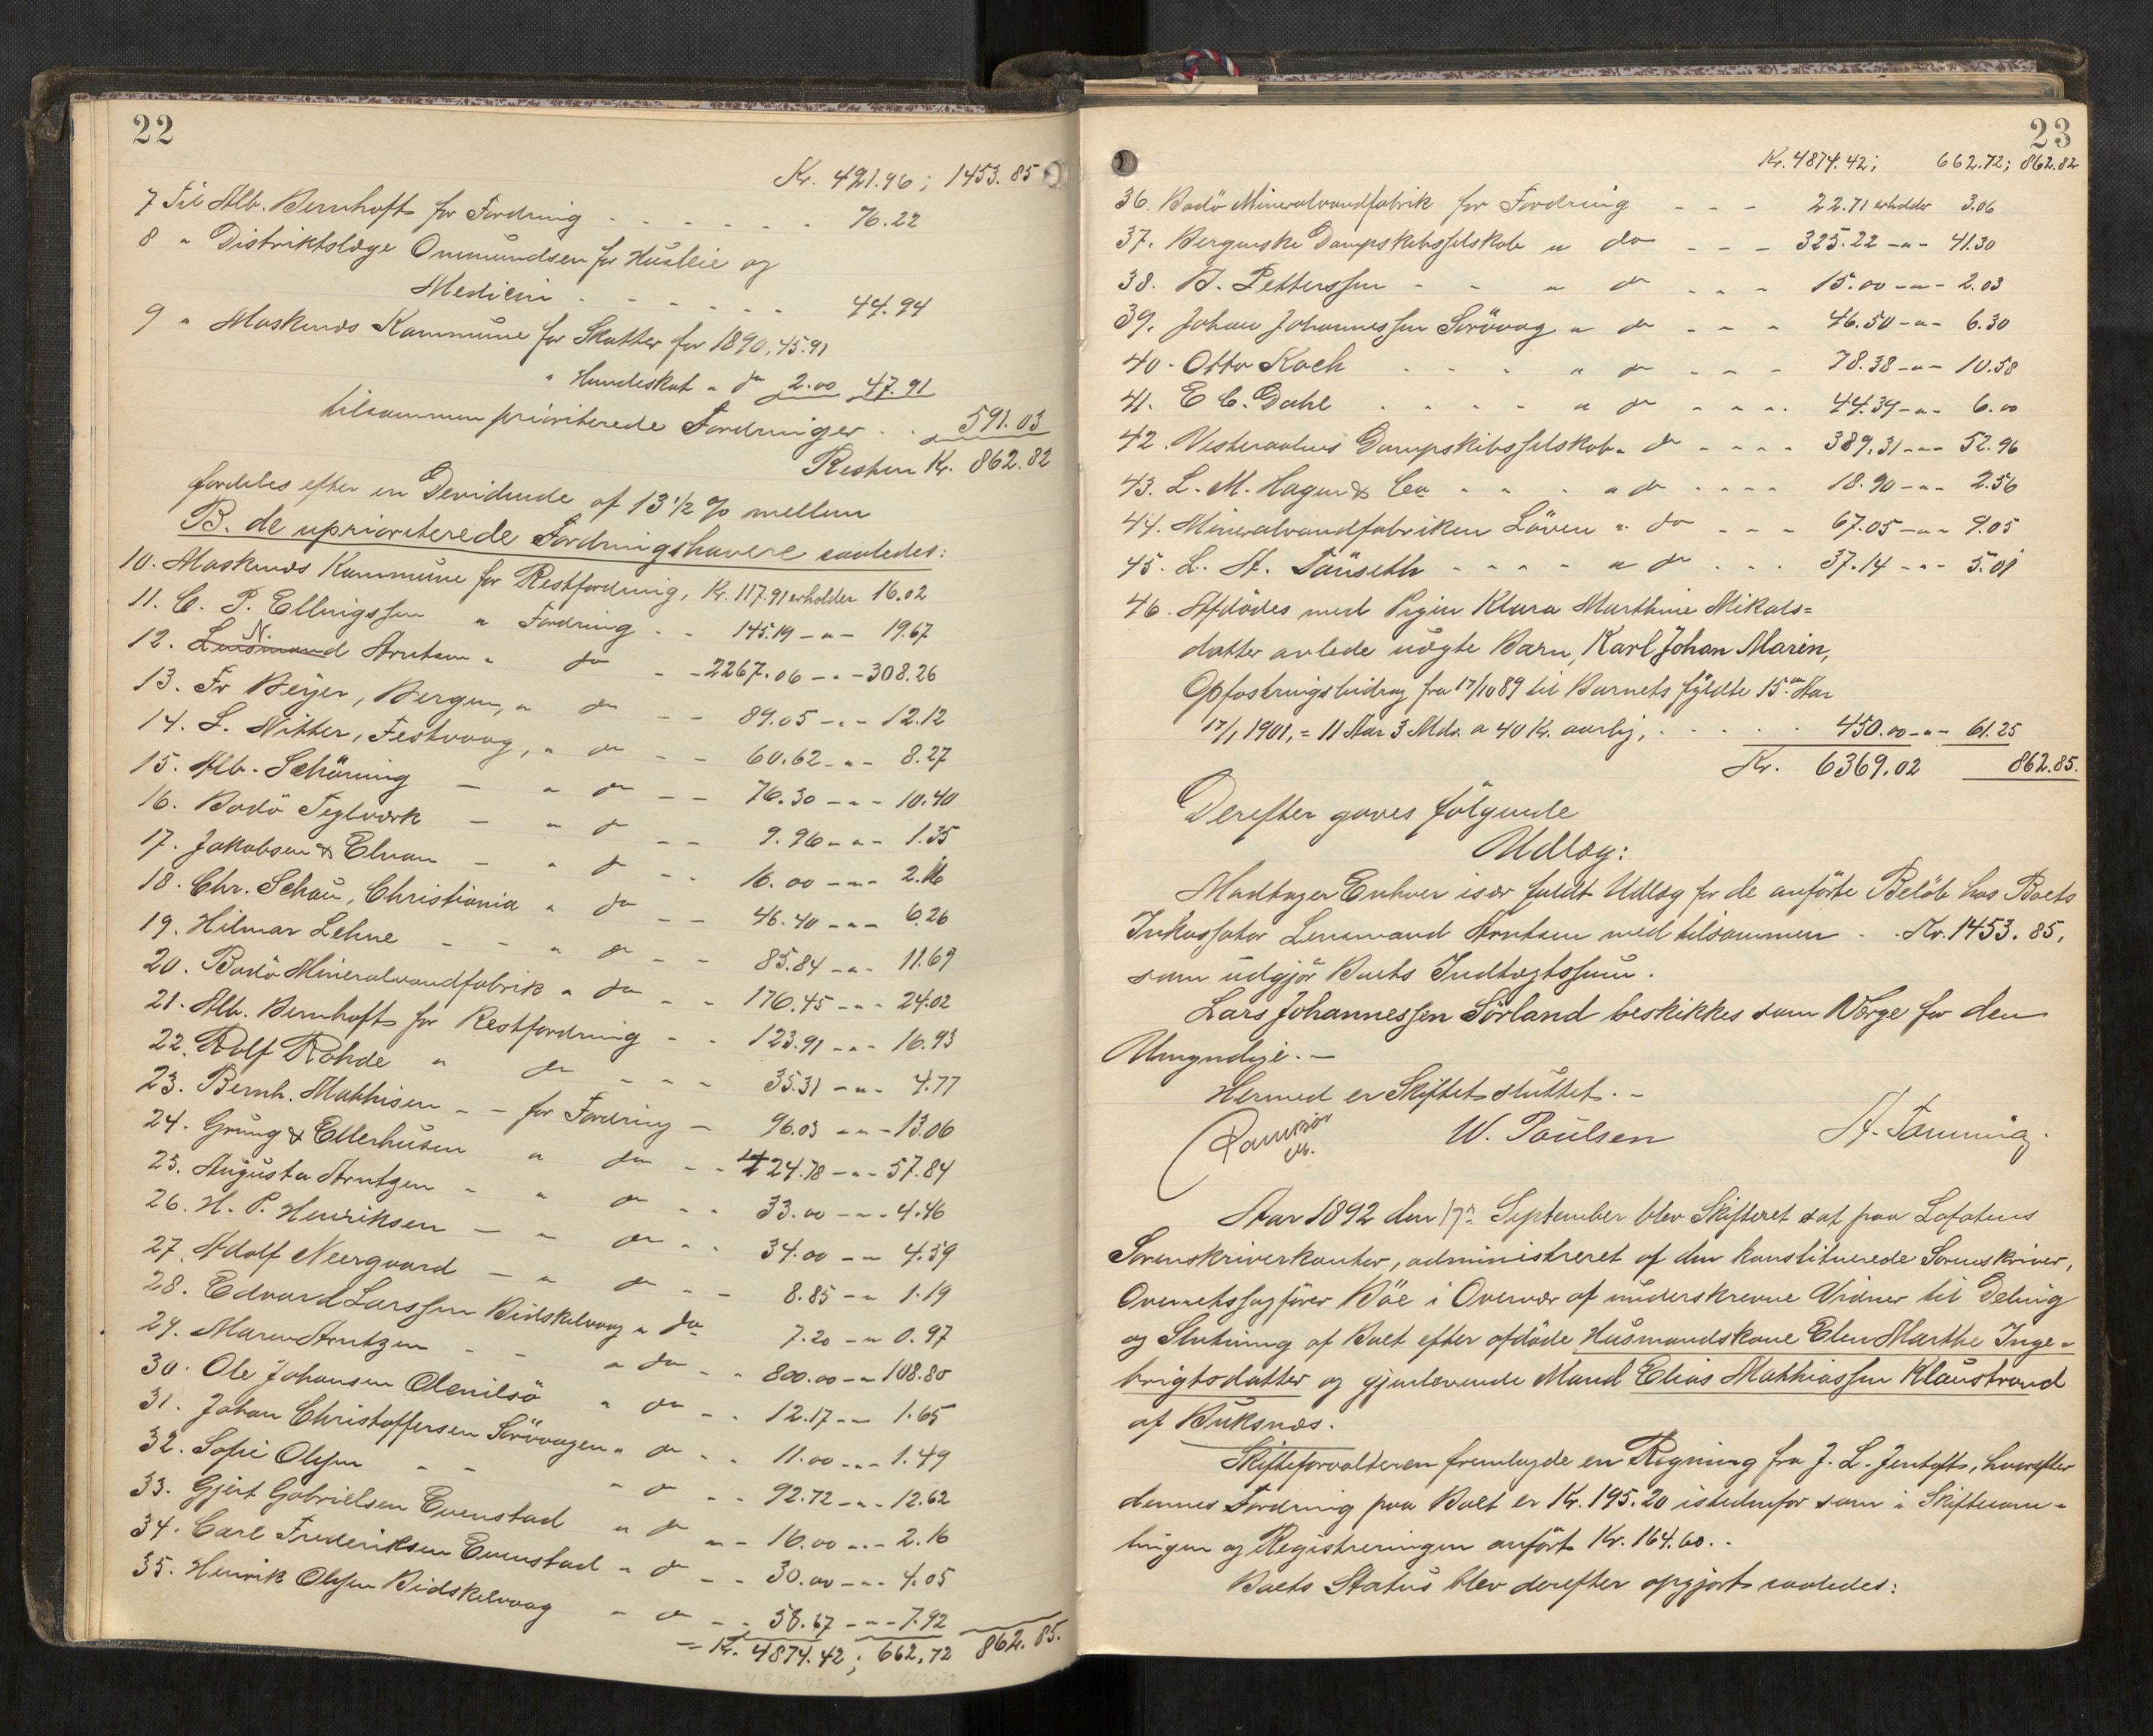 22
Kr. 421.96; 1453.85
7 Til Alb. Bernhoft for Fordring - - - - - - 76.22
8 " Distriktslæge Ommundsen for Husleie og
Medicin - - - - - - 44.94
9 " Moskenæs Kommune for Skatter for 1890, 45.91
" Hundeskat " do 2.00 47.91
tilsammen prioriterede Fordringer . . 591.03
Resten Kr. 862.82
fordeles efter en Devidende af 13 1/2 % mellem
B. de uprioriterede Fordringshavere saaledes:
10. Moskenæs Kommune for Restfordring, Kr. 117.91 erholder 16.02
11. C. P. Ellingssen " Fordring - - 145.19 -"- 19.67
12. Lensmand N. Arntsen " do - - 2267.06 -"- 308.26
13. Fr Beyer, Bergen, " do - - 89.05 -"- 12.12
14. L. Nitter, Festvaag, " do - - 60.62 -"- 8.27
15. Alb. Schöning - " do - - 76.30 -"- 10.40
16. Bodö Teglværk - " do - - 9.96 -"- 1.35
17. Jakobsen & Elvan - " do - - 16.00 -"- 2.16
18. Chr. Schou, Christiania " do - - 46.40 -"- 6.26
19. Hilmar Lehne - - " do - - 85.84 -"- 11.69
20. Bodö Mineralvandfabrik " do - - 176.45 -"- 24.02
21. Alb. Bernhoft for Restfordring - - 123.91 -"- 16.93
22. Rolf Rohde " do - - - 35.31 -"- 4.77
23. Bernh. Mathisen - - for Fordring - 96.03 -"- 13.06
24. Grung & Ellerhusen " do - - 424.78 -"- 57.84
25. Augusta Arntzen - " do - - 33.00 -"- 4.46
26. H. P. Henriksen - " do - - 34.00 -"- 4.59
27. Adolf Neergaard - " do - - 8.85 -"- 1.19
28. Edvard Larssen Bidskelvaag " do 7.20 -"- 0.97
29. Maren Arntzen - - " do - - 800.00 -"- 108.80
30. Ole Johansen Olenilsö " do - - 12.17 -"- 1.65
31. Johan Christoffersen Sörvaagen " do - - 11.00 -"- 1.49
32. Sofie Olsen - - " do - - 92.72 -"- 12.62
33. Gjert Gabrielsen Evenstad " do - - 16.00 -"- 2.16
34. Carl Frederiksen Evenstad " do - - 30.00 -"- 4.05
35. Henrik Olsen Bidskelvaag " do - - 58.67 -"- 7.92
= Kr. 4874.42; 662,72 862.85.
23
Kr. 4874.42; 662.72; 862.82
36. Bodö Mineralvandfabrik for Fordring - - - 22.71 erholder 3.06
37. Bergenske Dampskibsselskab " do - - - 325.22 -"- 41.30
38. B. Petterssen - - " do - - - 15.00 -"- 2.03
39. Johan Johannessen Sörvaag " do - - - 46.50 -"- 6.30
40. Otto Koch - - - " do - - - 78.38 -"- 10.58
41. E C. Dahl . . . . " do - - - 44.39 -"- 6.00
42. Vesteraalens Dampskibsselskab " do - - - 389.31 -"- 52.96
43. L. M. Hagen & Co - - - " do - - - 18.90 -"- 2.56
44. Mineralvandfabriken Löven " do - - - 67.05 -"- 9.05
45. L. A. Tanseth - - - - " do - - - 37.14 -"- 5.01
46. Afdödes med Pigen Klara Marthine Nikals=
datter avlede uægte Barn, Karl Johan Marin,
Opfostringsbidrag fra 17/10 89 til Barnets fyldte 15de Aar
17/1 1901, = 11 Aar 3 Mdr. a 40 Kr. aarlig, . . . . . 450.00 -"- 61.25
Kr. 6369.02 862.85.
Derefter gaves fölgende
Udlæg:
Modtager Enhver især fuldt Udlæg for de anförte Belöb hos Boets
Inkassator Lensmand Arntsen med tilsammen - . Kr. 1453.85,
som udgjör Boets Indtægtssum.
Lars Johannessen Sörland beskikkes som Værge for den
Umyndige. -
Hermed er Skiftet sluttet. -
W. Paulsen A. Tamming.
Aar 1892 den 17de September blev Skifteret sat paa Lofotens
Sorenskriverkontor, administreret af den konstituerede Sorenskriver,
Overretssagförer Böe i Overvær af underskrevne Vidner til Deling
og Slutning af Boet efter afdöde Husmandskone Elen Marthe Inge=
brigtsdatter og gjenlevende Mand Elias Mathiassen Klaustrand
af Buksnæs.
Skifteforvalteren fremlagde en Regning fra J. L. Jentoft, hvorefter
dennes Fordring paa Boet er Kr. 195.20 istedenfor som i Skiftesam=
lingen og Registreringen anfört Kr. 164.60. .
Boets Status blev derefter opgjort saaledes: